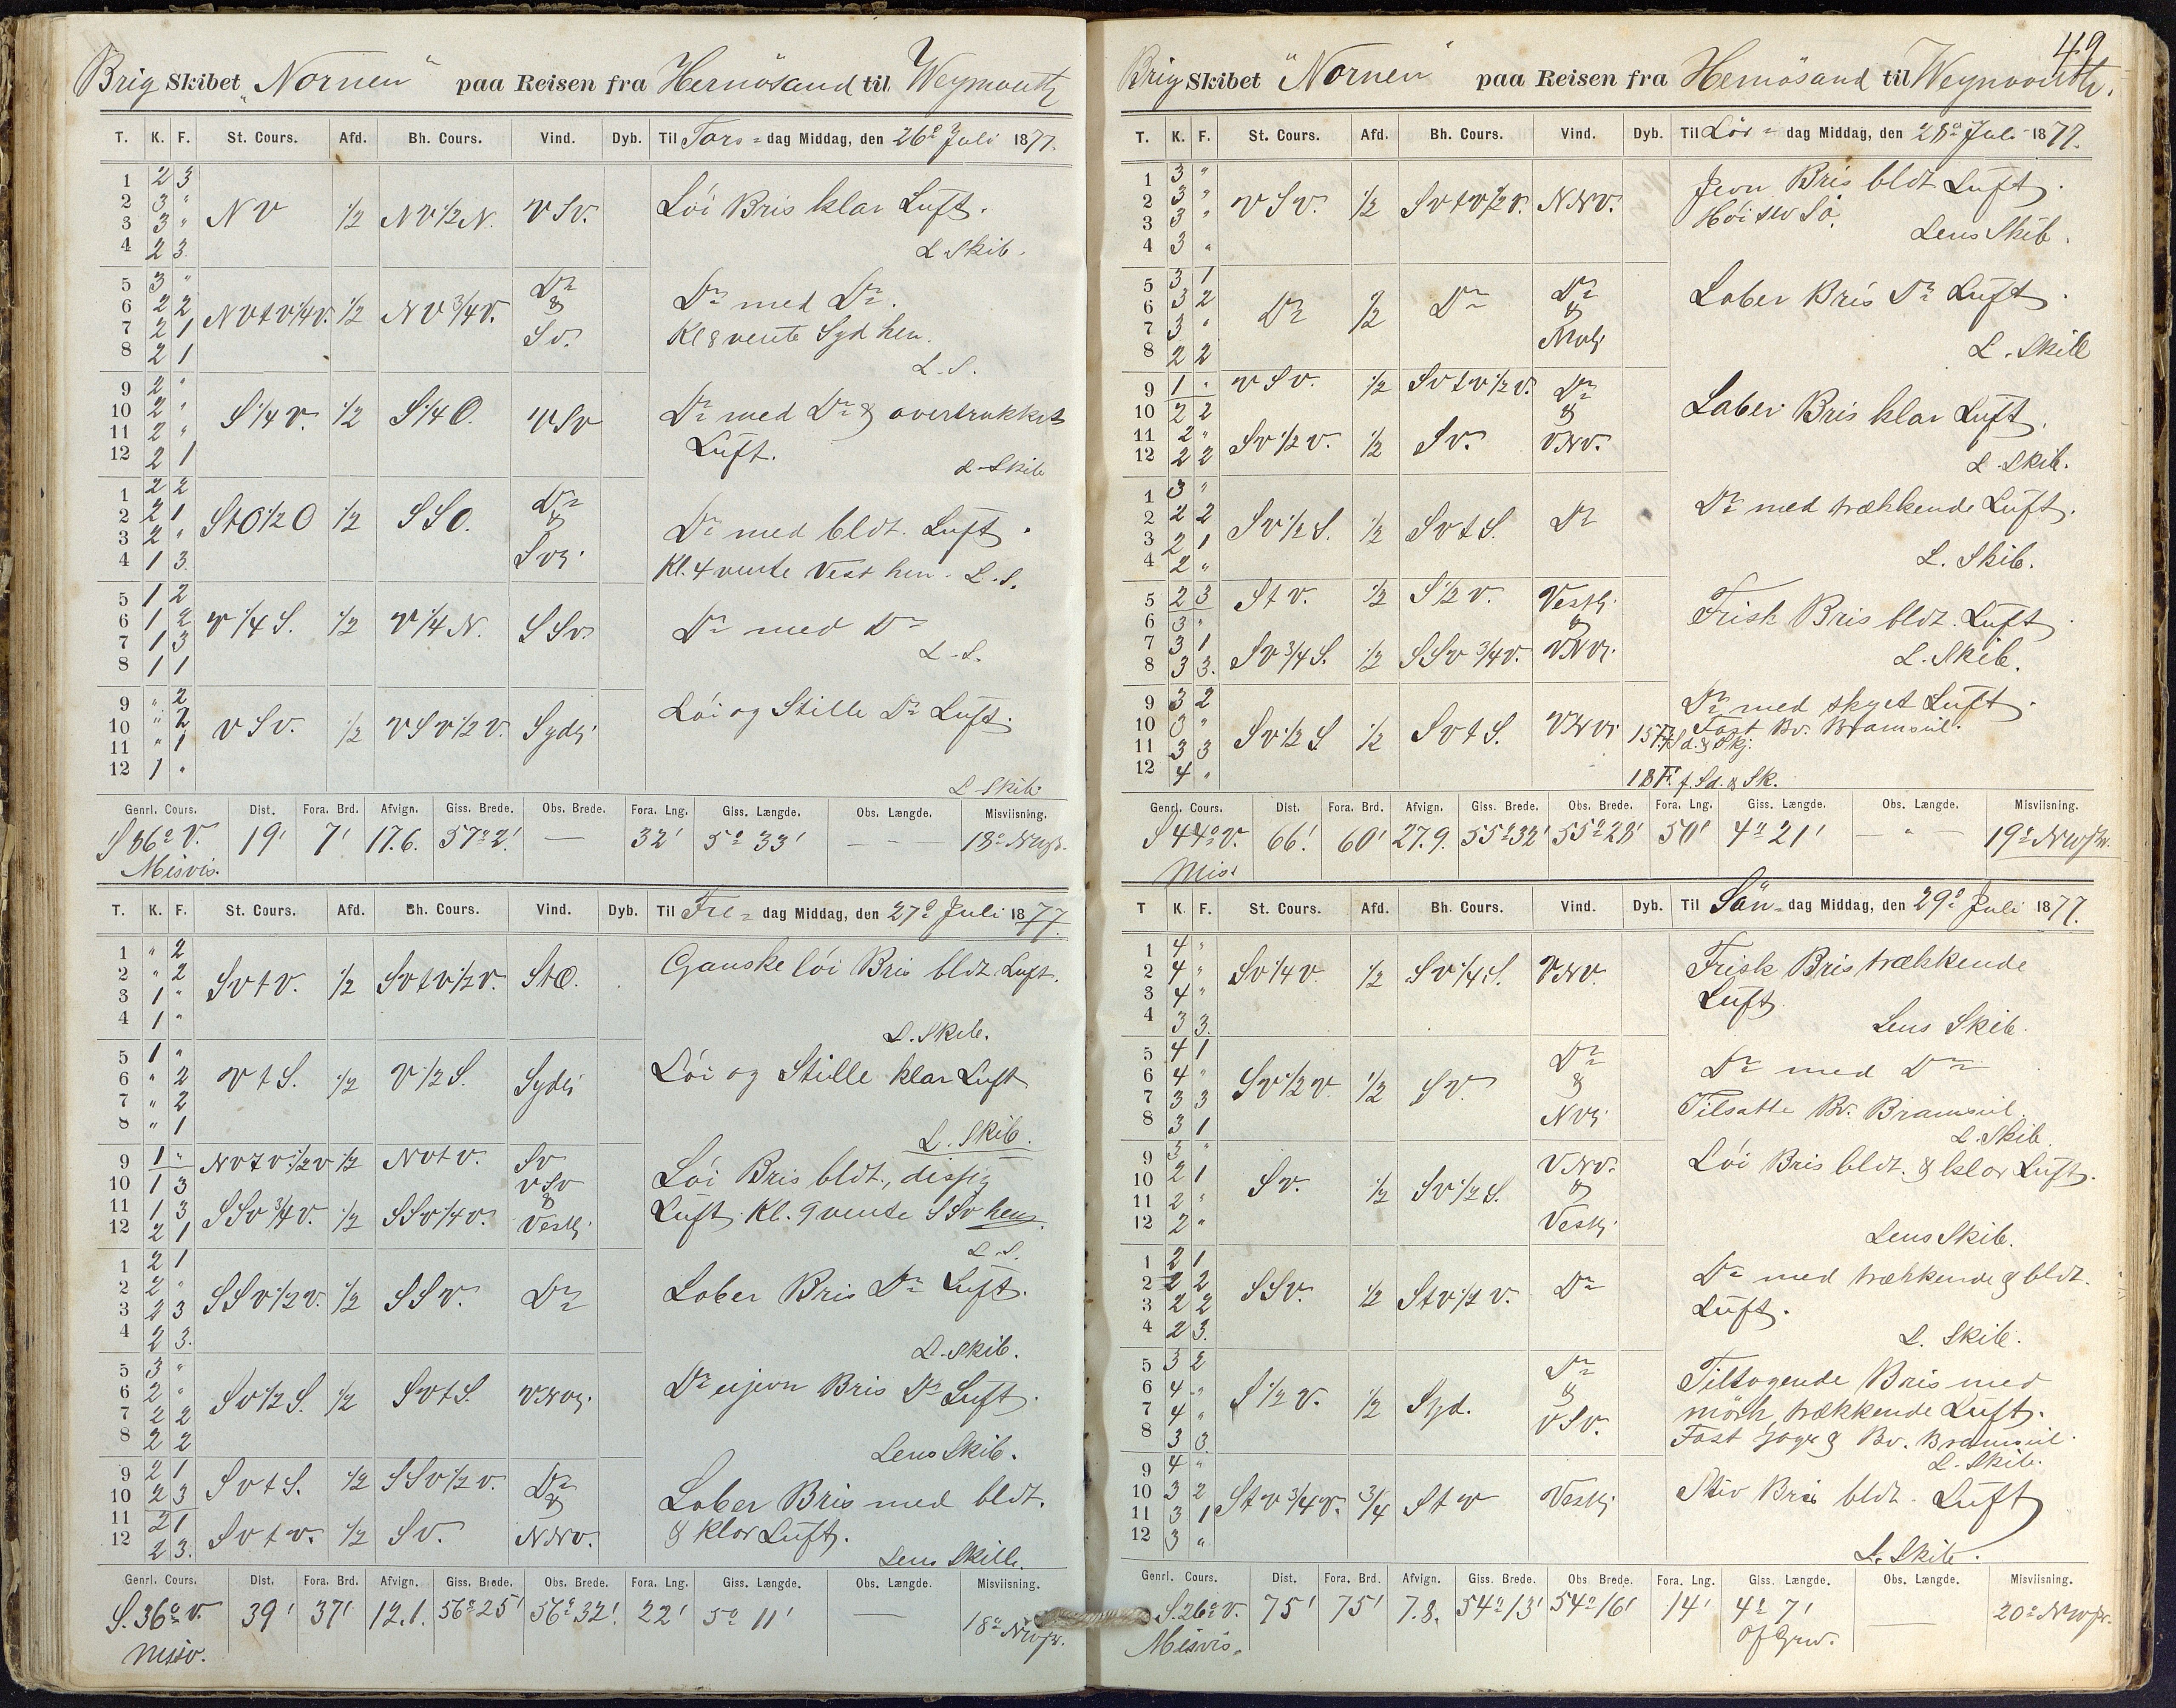 Brig Skibet "Nornen" paa Reisen fra Hernösand til Weymouth
T. K. F. St. Cours. Afd. Bh. Cours. Vind. Dyb. Til Tors=dag Middag, den 26º Juli 1877.
1 2 3
2 3 "
3 3 "
4 2 3
NV 1/2 NV1/2N. VSV. Löi Bris klar Luft.
L. Skib.
5 3 "
6 2 2
7 2 1
8 2 1
NVtV1/4V. 1/2 NV3/4V. Do & SV. Do med Do.
Kl 8 vente Syd hen.
L. S.
9 2 "
10 2 "
11 2 "
12 2 1
S1/4V. 1/2 S1/4O. VSV Do med Do & overtrukket
Luft.
L. Skib
1 2 2
2 2 1
3 2 "
4 1 3
StO1/2O 1/2 SSO. Do & SVl. Do med bldt. Luft.
Kl. 4 vente Vest hen. L. S.
5 1 2
6 1 2
7 1 3
8 1 1
V1/4S. 1/2 V1/4N. SSV Do med Do
L. S.
9 " 2
10 " 2
11 " 1
12 1 "
VSV. 1/2 VSV1/2V. Sydl. Löi og Stille Do Luft.
L Skib
Genrl. Cours. Dist. Fora. Brd. Afvign. Giss. Brede. Obs. Brede. Fora. Lng. Giss. Længde. Obs. Længde. Misviisning.
S 86º V. 19' 7' 17.6. 57º2' — 32' 5º 33' — — — 18º NWs.
Misvis.
T. K. F. St. Cours. Afd. Bh. Cours. Vind. Dyb. Til Fre= dag Middag, den 27º Juli 1877.
1 " 2
2 " 2
3 1 "
4 1 "
SVtV. 1/2 SVtV1/2V. StO. Ganske löi Bris bldt Luft.
L. Skib.
5 1 "
6 " 2
7 " 2
8 " 1
VtS. 1/2 V1/2S. Sydl. Löi og Stille klar Luft
L. Skib.
9 1 "
10 1 3
11 1 3
12 2 1
NVtV1/2V 1/2 NVtV. SV VSV Löi Bris bldt., dissig
SSV3/4V. 1/2 SSV1/4V. & Vestl. Luft. Kl. 9 vente SSV hen.
L. S.
1 2 1
2 2 "
3 2 3
4 2 3.
SSV1/2V. 1/2 SSV. Do Laber Bris Do Luft.
L. Skib.
5 3 "
6 2 "
7 2 2
8 2 2
SV1/2S. 1/2 SVtS. VNVl. Do ujevn Bris Do Luft.
Lens Skib.
9 2 1
10 2 3
11 2 1
12 2 3.
SVtS. 1/2 SSV1/2V. Do & Laber Bris med bldt.
SVtV. 1/2 SV. NNV. & klar Luft.
Lens Skib.
Genrl. Cours. Dist. Fora. Brd. Afvign. Giss. Brede. Obs. Brede. Fora. Lng. Giss. Længde. Obs. Længde. Misviisning.
S. 36º V. 39' 37' 12.1. 56º25' 56º32' 22' 5º 11' — 18º NWs.
Misv.
49
Brig Skibet "Nornen" paa Reisen fra Hernösand til Weymouth.
T. K. F. St. Cours. Afd. Bh. Cours. Vind. Dyb. Til Lör= dag Middag, den 28º Juli 1877.
1 3 "
2 3 "
3 3 "
4 3 "
VSV. 1/2 SVtV1/2V. NNV. Jevn Bris bldt Luft.
Lens Skib.
5 3 1
6 3 2
7 3 "
8 2 2
Do 1/2 Do Do & NVl. Laber Bris Do Luft.
L. Skib
9 1 "
10 2 2
11 2 "
12 2 2
VSV. 1/2 SVtV1/2V. Do & Laber Bris klar Luft.
SV1/2V. 1/2 SV. VNV.
L. Skib.
1 3 "
2 2 2
3 2 1
4 2 "
SV1/2S. 1/2 SVtS. Do Do med trækkende Luft.
L. Skib.
5 2 3
6 3 "
7 3 1
8 3 3.
StV. 1/2 S1/2V. Vestl. & Frisk Bris bldt. Luft.
SV3/4S. 1/2 SSV3/4V. VNVl.
L. Skib.
9 3 2
10 3 "
11 3 3
12 4 "
SV1/2S 1/2 SVtS. VNVl Do med skyet Luft.
Fast Bv. Bramseil.
18 F. f. Sd. & Sk.
Genrl. Cours. Dist. Fora. Brd. Afvign. Giss. Brede. Obs. Brede. Fora. Lng. Giss. Længde. Obs. Længde. Misviisning.
S 44º V. 66' 60' 27.9. 55º32' 55º28' 50' 4º 21' — " — 19º NWs.
Mis.
T K. F. St. Cours. Afd. Bh. Cours. Vind. Dyb. Til Sön=dag Middag, den 29º Juli 1877.
1 4 "
2 4 "
3 4 "
4 3 3.
SV1/4V 1/2 SV1/4S. VNV. Frisk Bris trækkende
Luft.
Lens Skib.
5 4 1
6 4 "
7 3 3
8 3 1
SV1/2V 1/2 SV. Do & NVl. Do med Do
Tilsatte Bv. Bramseil.
L. Skib.
9 3 "
10 2 1
11 2 "
12 2 "
SV. 1/2 SV1/2S. VNV. & Vestl. Löi Bris bldt. & klar Luft.
Lens Skib.
1 2 1
2 2 2
3 2 2
4 2 3.
SSV. 1/2 StV1/2V. Do Do med trækkende & bldt.
Luft.
L. Skib.
5 3 2
6 4 "
7 4 "
8 3 3
S1/2V. 1/2 Syd. Do & VSV. Tiltagende Bris med
mörk, trækkende Luft.
Fast Jager & Bv. Bramseil.
L. Skib.
9 4 "
10 3 2
11 3 1
12 3 "
StV3/4V. 3/4 StV Vestl. Stiv Bris bldt. Luft
L. Skib.
Genrl. Cours. Dist. Fora. Brd. Afvign. Giss. Brede. Obs. Brede. Fora. Lng. Giss. Længde. Obs. Længde. Misviisning.
S. 26º V. 75' 75' 7.8. 54º13' 54º16' 14' 4º 7' — 20º NWs.
Misvis. Of Grw.